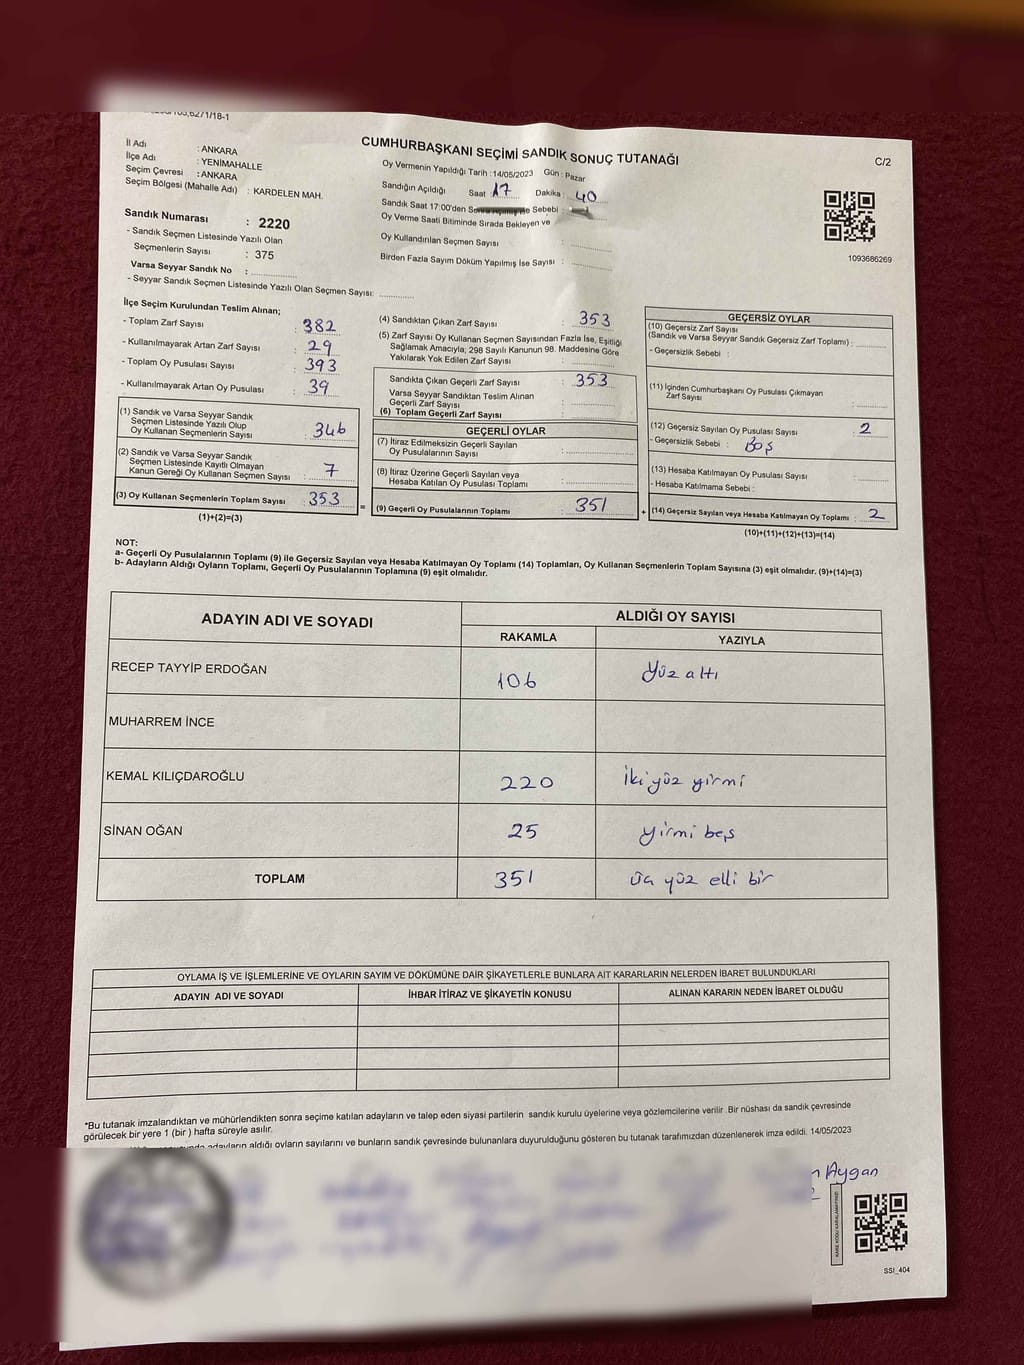 6271/18-1
İl Adı : ANKARA
İlçe Adı : YENİMAHALLE
Seçim Çevresi : ANKARA
Seçim Bölgesi (Mahalle Adı) : KARDELEN MAH.
CUMHURBAŞKANI SEÇİMİ SANDIK SONUÇ TUTANAĞI
C/2
Oy Vermenin Yapıldığı Tarih :14/05/2023 Gün : Pazar
Sandığın Açıldığı Saat 17 Dakika : 40
Sandık Saat 17:00'den Sonra Açılmış ise Sebebi :
Oy Verme Saati Bitiminde Sırada Bekleyen ve
Oy Kullandırılan Seçmen Sayısı :
Birden Fazla Sayım Döküm Yapılmış İse Sayısı :
1093686269
Sandık Numarası : 2220
- Sandık Seçmen Listesinde Yazılı Olan
Seçmenlerin Sayısı : 375
Varsa Seyyar Sandık No :
- Seyyar Sandık Seçmen Listesinde Yazılı Olan Seçmen Sayısı:
İlçe Seçim Kurulundan Teslim Alınan;
- Toplam Zarf Sayısı : 382
- Kullanılmayarak Artan Zarf Sayısı : 29
- Toplam Oy Pusulası Sayısı : 393
- Kullanılmayarak Artan Oy Pusulası : 39
(1) Sandık ve Varsa Seyyar Sandık
Seçmen Listesinde Yazılı Olup
Oy Kullanan Seçmenlerin Sayısı : 346
(2) Sandık ve Varsa Seyyar Sandık
Seçmen Listesinde Kayıtlı Olmayan
Kanun Gereği Oy Kullanan Seçmen Sayısı : 7
(3) Oy Kullanan Seçmenlerin Toplam Sayısı : 353
(1)+(2)=(3)
(4) Sandıktan Çıkan Zarf Sayısı : 353
(5) Zarf Sayısı Oy Kullanan Seçmen Sayısından Fazla İse, Eşitliği
Sağlamak Amacıyla; 298 Sayılı Kanunun 98. Maddesine Göre
Yakılarak Yok Edilen Zarf Sayısı :
Sandıkta Çıkan Geçerli Zarf Sayısı : 353
Varsa Seyyar Sandıktan Teslim Alınan
Geçerli Zarf Sayısı :
(6) Toplam Geçerli Zarf Sayısı :
GEÇERLİ OYLAR
(7) İtiraz Edilmeksizin Geçerli Sayılan
Oy Pusulalarının Sayısı :
(8) İtiraz Üzerine Geçerli Sayılan veya
Hesaba Katılan Oy Pusulası Toplamı :
= (9) Geçerli Oy Pusulalarının Toplamı : 351
GEÇERSİZ OYLAR
(10) Geçersiz Zarf Sayısı
(Sandık ve Varsa Seyyar Sandık Geçersiz Zarf Toplamı) :
- Geçersizlik Sebebi :
(11) İçinden Cumhurbaşkanı Oy Pusulası Çıkmayan
Zarf Sayısı :
(12) Geçersiz Sayılan Oy Pusulası Sayısı : 2
- Geçersizlik Sebebi : Boş
(13) Hesaba Katılmayan Oy Pusulası Sayısı :
- Hesaba Katılmama Sebebi :
+ (14) Geçersiz Sayılan veya Hesaba Katılmayan Oy Toplamı : 2
(10)+(11)+(12)+(13)=(14)
NOT:
a- Geçerli Oy Pusulalarının Toplamı (9) ile Geçersiz Sayılan veya Hesaba Katılmayan Oy Toplamı (14) Toplamları, Oy Kullanan Seçmenlerin Toplam Sayısına (3) eşit olmalıdır. (9)+(14)=(3)
b- Adayların Aldığı Oyların Toplamı, Geçerli Oy Pusulalarının Toplamına (9) eşit olmalıdır.
ADAYIN ADI VE SOYADI ALDIĞI OY SAYISI
RAKAMLA YAZIYLA
RECEP TAYYİP ERDOĞAN 106 Yüz altı
MUHARREM İNCE
KEMAL KILIÇDAROĞLU 220 İki yüz yirmi
SİNAN OĞAN 25 yirmi beş
TOPLAM 351 üç yüz elli bir
OYLAMA İŞ VE İŞLEMLERİNE VE OYLARIN SAYIM VE DÖKÜMÜNE DAİR ŞİKAYETLERLE BUNLARA AİT KARARLARIN NELERDEN İBARET BULUNDUKLARI
ADAYIN ADI VE SOYADI İHBAR İTİRAZ VE ŞİKAYETİN KONUSU ALINAN KARARIN NEDEN İBARET OLDUĞU
*Bu tutanak imzalandıktan ve mühürlendikten sonra seçime katılan adayların ve talep eden siyasi partilerin sandık kurulu üyelerine veya gözlemcilerine verilir .Bir nüshası da sandık çevresinde
görülecek bir yere 1 (bir ) hafta süreyle asılır.
adayların aldığı oyların sayılarını ve bunların sandık çevresinde bulunanlara duyurulduğunu gösteren bu tutanak tarafımızdan düzenlenerek imza edildi. 14/05/2023
Aygan
KARE KODU KARALAMAYINIZ!
SSI_404